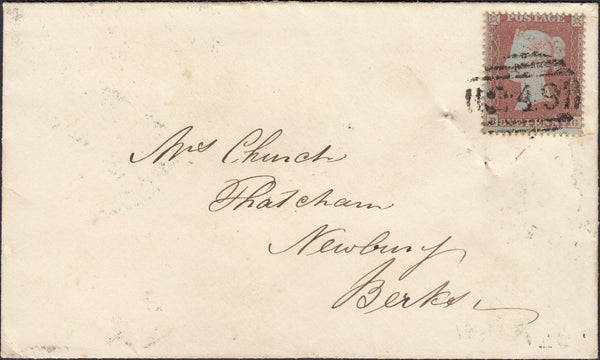 POSTAGE
Mrs Church
Thatcham
Newbury
Berks